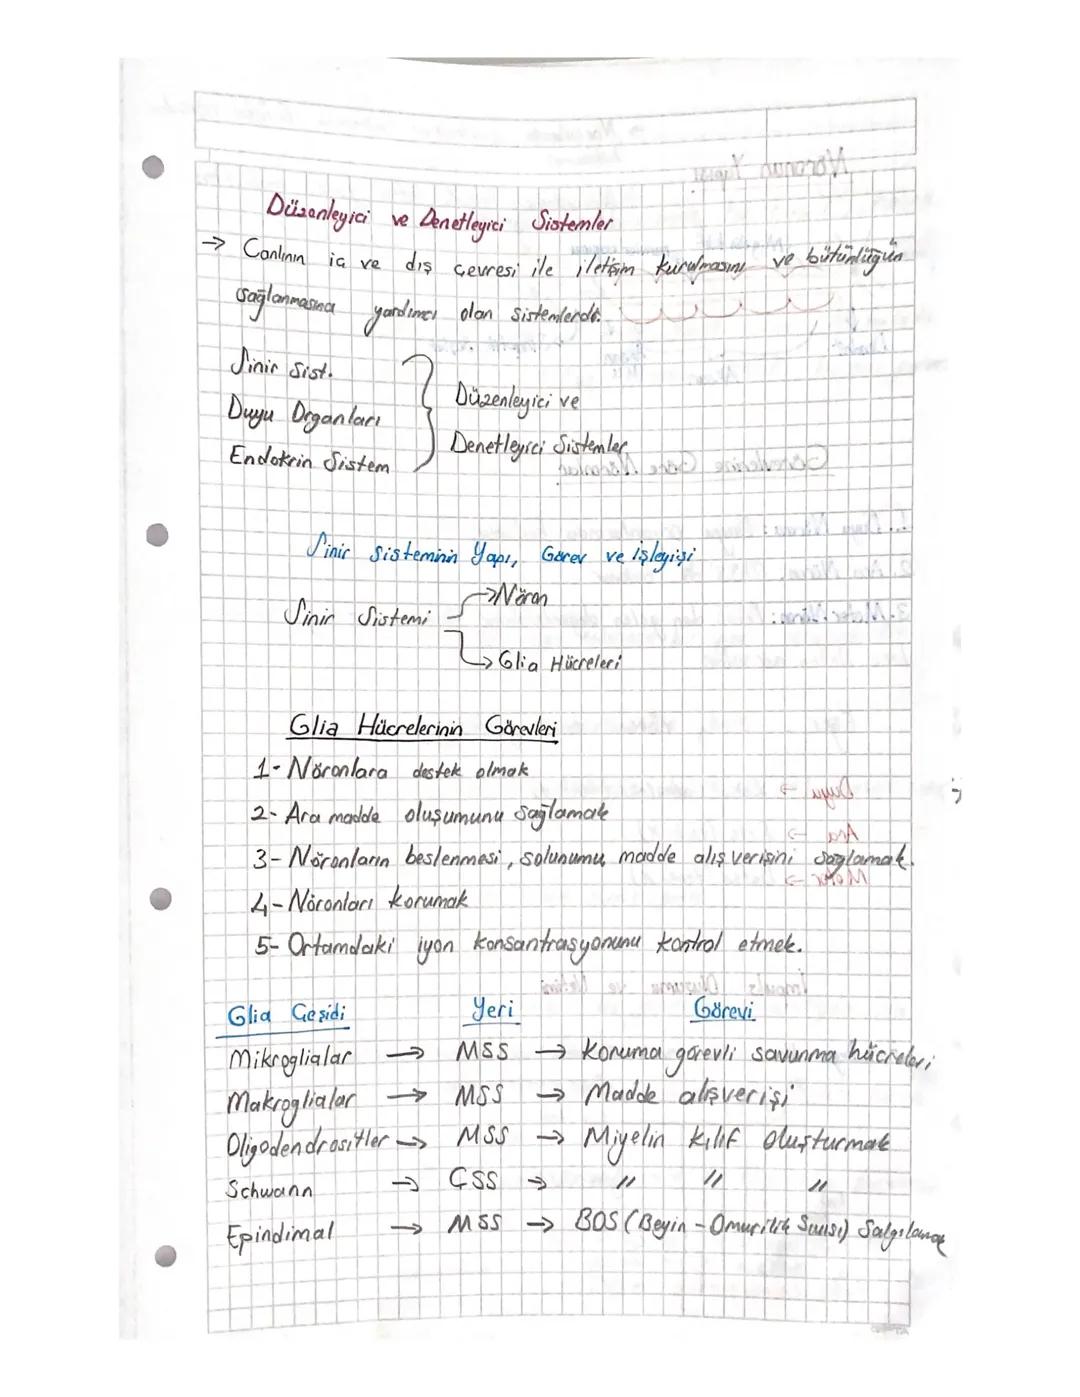 Düzenleyici ve Denetleyici Sistemler
→ Canlının iç ve dış çevresi ile iletişim kurulmasını ve bütünlüğün
sağlanmasına yardımcı olan sistemlerdir.
Sinir Sist.
Duyu Organları
Endokrin Sistem
Düzenleyici ve
Denetleyici Sistemler
Sinir Sisteminin Yapı, Görev ve işleyişi
Sinir Sistemi
→ Nöron
→ Glia Hücreleri
Glia Hücrelerinin Görevleri
1- Nöronlara destek olmak
2- Ara madde oluşumunu sağlamak
3- Nöronların beslenmesi, solunumu, madde alış verişini sağlamak.
4- Nöronları korumak
5- Ortamdaki iyon konsantrasyonunu kontrol etmek.
Glia Çeşidi Yeri Görevi
Mikroglialar → MSS → Koruma görevli savunma hücreleri
Makroglialar → MSS → Madde alışverişi
Oligodendrositler → MSS → Miyelin kılıf oluşturmak
Schwann → ÇSS → " " "
Epindimal → MSS → BOS (Beyin-Omurilik Sıvısı) Salgılamak